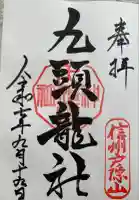 奉拝
九頭龍社
信州戸隠山
令和 年九月十 日